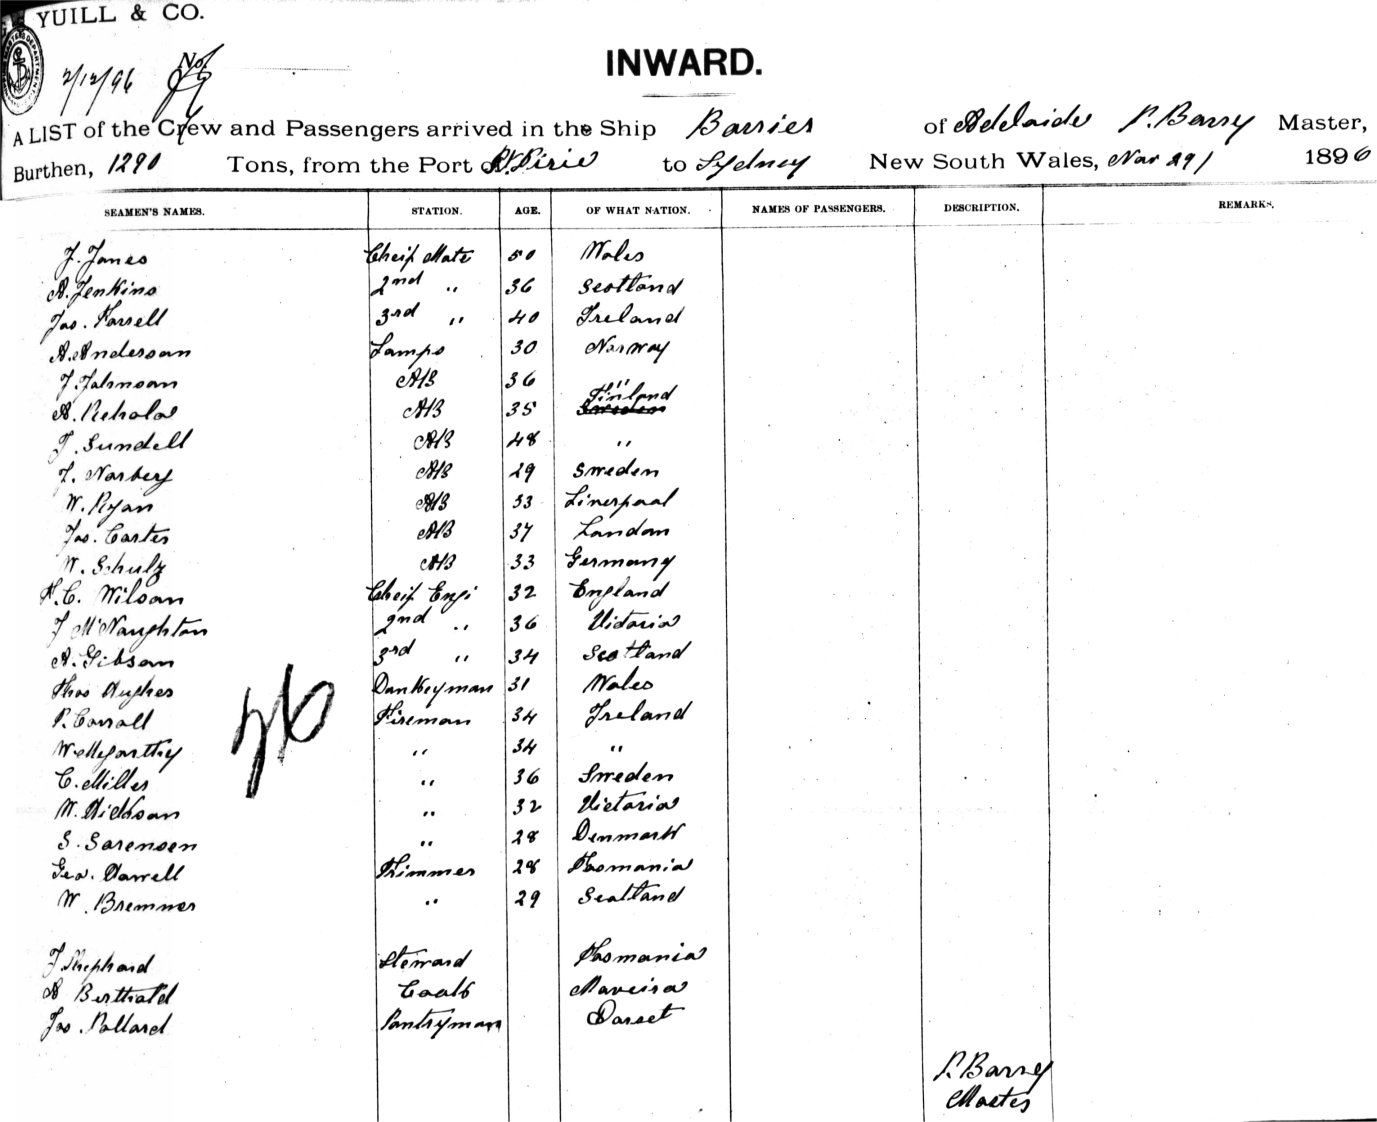 YUILL & CO.
2/12/96 No.
INWARD.
A LIST of the Crew and Passengers arrived in the Ship Barrier of Adelaide P. Barry Master,
Burthen, 1290 Tons, from the Port of Pt. Pirie to Sydney New South Wales, Nov 29/ 1896
SEAMEN'S NAMES. STATION. AGE. OF WHAT NATION. NAMES OF PASSENGERS. DESCRIPTION. REMARKS.
J. Jones Cheif Mate 50 Wales
A. Jenkins 2nd " 36 Scotland
Jas. Farrell 3rd " 40 Ireland
A. Anderson Lamps 30 Norway
J. Johnson AB 36 "
A. AB 35 Finland Sweden
J. Sundell AB 48 "
J. Norberg AB 29 Sweden
W. Ryan AB 33 Liverpool
Jas. Carter AB 37 London
W. Schulz AB 33 Germany
H. C. Wilson Cheif Engi 32 England
J McNaughton 2nd " 36 Victoria
A. Gibson 3rd " 34 Scotland
Thos Hughes Donkeyman 31 Wales
P. Carroll Fireman 34 Ireland
W. Megarthy " 34 "
C. Miller " 36 Sweden
W. Dickson " 32 Victoria
S. Sorensen " 28 Denmark
Geo. Darrell Trimmer 28 Tasmania
W. Bremner " 29 Scotland
26
J Shephard Steward Tasmania
A Berthold Cook
Jas. Pollard Pantryman Dorset
P. Barry
Master